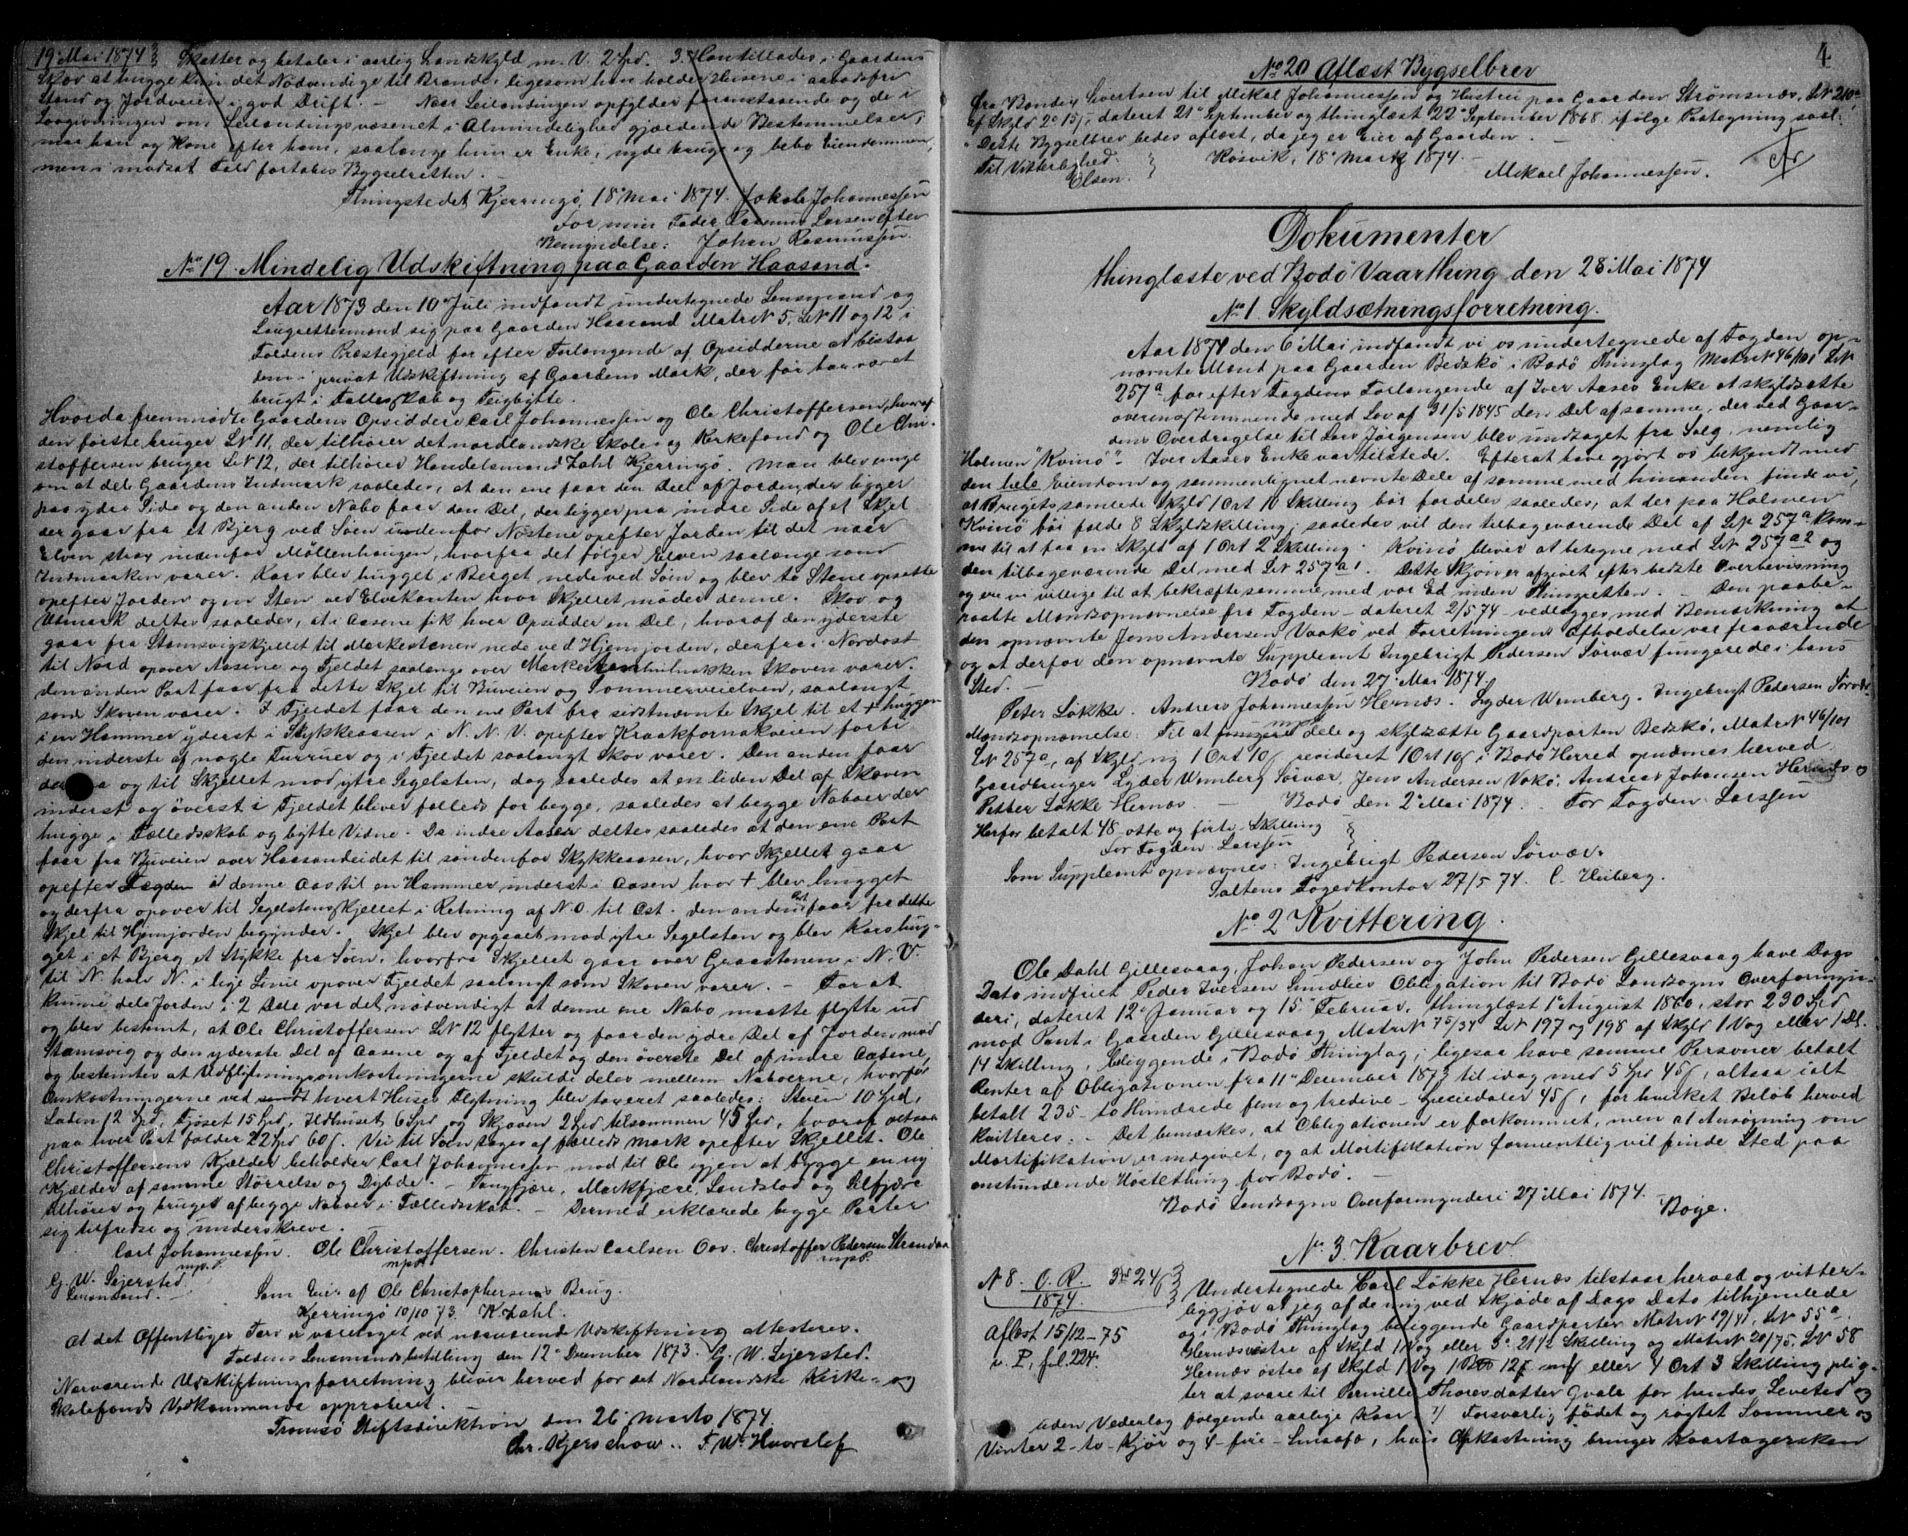 19de Mai 1874
Skatter og betaler i aarlig Landskyld m. V. 2 Spd. 3. Han tillades i Gaardens
Skov at hugge kun det Nødvendige til Brænde, ligesom han holder Husene i aabodsfri
Stand og Jordveien i god Drift. – Naar Leilændingen opfylder foranstaaende og de i
Lovgivningen om Leilændingsvæsenet i Almindelighed gjældende Bestemmelser,
maa han og Kone efter ham, saalænge hun er Enke, nyde bruge og bebo Eiendommen,
men i modsat Fald fortabes Bygselretten. –
Thingstedet Kjerringø, 18de Mai 1874. Jakob Johannessen
For min Fader Rasmus Larsen efter
Bemyndelse: Johan Rasmussen
No 19. Mindelig Udskiftning paa Gaarden Haasand.
Aar 1873 den 10de Juli indfandt undertegnede Lensmand og
Laugrettesmænd sig paa Gaarden Haasand Matr N 5, LN 11 og 12 i
Foldens Præstegjeld for efter Forlangende af Opsidderne at bistaa
dem i privat Udskiftning af Gaardens Mark, der før har været
brugt i Fællesskab og Teigbytte.
Hvorda fremmødte Gaardens Opsiddere Carl Johannessen og Ole Christoffersen, hvoraf
den første bruger LN 11, der tilhører det nordlandske Skole- og Kirkefond og Ole Chri-
stoffersen bruger LN 12, der tilhører Handelsmand Zahl Kjerringø. Man blev enige
om at dele Gaardens Indmark saaledes, at den ene faar den Deel af Jorden, der ligger
paa ydre Side og den anden Nabo faar den Del, der ligger paa indre Side af et Skjel
der gaar fra et Bjerg ved Søen udenfor Nøstene opefter Jorden til det naar
Elven strax indenfor Möllenhaugen, hvorfra det følger Elven saalænge som
Indmarken varer. Kors blev hugget i Berget nede ved Søen og blev to Stene opsatte
opefter Jorden og en Sten ved Elvekanten hvor Skjellet møder denne. Skov og
Utmark deltes saaledes, at i Aasene fik hver Opsidder en Del, hvoraf den yderste
gaar fra Stamsvigskjellet til Merkestenen nede ved Hjemjorden, derfra i Nordost
til Nord opover Aasene og Fjeldet saalangt over Skoven varer.
den anden Part faar fra dette Skjel til Buveien og Sommerveielven, saalangt
som Skoven varer. I Fjeldet faar den ene Part fra sidstnævnte Skjel til et + huggen
i en Hammer yderst i Stykkeaasen i N. N. V. opefter Kraakfornakveien forbi
den inderste af nogle Furruer og i Fjeldet saalangt Skov varer. Den anden faar
og til Skjellet mod ytre Segelsten, dog saaledes at en liden Del af Skoven
inderst og øverst i Fjeldet bliver fælleds for begge, saaledes at begge Naboer der
hugge i Fælledsskab og bytte Vidne. De indre Aaser deltes saaledes at den ene Part
faar fra Buveien over Haasandeidet til søndenfor Stykkeaasen, hvor Skjellet gaar
opefter i denne Aas til en Hammer underst i Aasen hvor + blev hugget
og derfra opover til Segelstensskjellet i Retning af N. O. til Ost. den anden Part faar fra dette
Skjel til Hjemjorden begynder. Skjel blev opgaaet mod ytre Segelsten og blev Kors hug-
get i et Bjerg et Stykke fra Søen, hvorfra Skjellet gaar over Graastenen i N. V.
til N. halv N. i lige Linie opover Fjeldet saalangt som Skoven varer. – For at
kunne dele Jorden i 2 Dele var det nødvendigt at denne ene Nabo maatte flytte ud
og blev bestemt, at Ole Christoffersen LN 12 flytter og faar den ydre Del af Jorden mod
Stamsvig og den yderste Del af Aasene og af Fjeldet og den øverste Del af indre Aasene,
og bestemtes at Udflytningsomkostningerne skulde deles mellem Naboerne, hvorfor
Omkostningerne ved hvert Huses Flytning blev taxeret saaledes: Stuen 10 Spd,
Laden 12 Spd, Fjøset 15 Spd, Ildhuset 6 Spd og Skjaaen 2 Spd tilsammen 45 Spd, hvoraf altsaa
paa hver Part falder 22 Spd 60 s. Vei til Søen tages af fælleds Mark opefter Skjellet. Ole
Christoffersens Kjælder beholder Carl Johannessen mod til Ole igjen at bygge en ny
Kjælder af samme Størrelse og Dybde. – Tangfjære, Markfjære, Landslod og Alfjære
tilhører og bruges af begge Naboer i Fælledsskab. – Dermed erklærede begge Parter
sig tilfredse og underskreve.
Carl Johannessen. Ole Christoffersen. Christen Carlsen Oov. Christoffer Pedersen Strandaa
m.p.P. m.p.P. m.p.P.
G. W. Sejersted
Lensmand. –
Som Eier af Ole Christophersens Brug.
Kjerringø 10/10 73. K. Zahl.
At det Offentliges Tarv er varetaget ved nærværende Udskiftning attesteres.
Foldens Lensmandsbestilling den 12te December 1873. G. W. Sejersted.
Nærværende Udskiftningsforretning bliver herved for det Nordlandske Kirke- og
Skolefonds Vedkommende approberet. –
Tromsø Stiftsdirektion den 26de Marts 1874.
Chr. Kjerschow. F. W. Hvorslef
4
No 20 Aflæst Bygselbrev
fra Bonde Sivertsen til Mikal Johannessen og Hustru paa Gaarden Strømsnæs, LN 210a
af Skyld 2 15 s, dateret 21de September og thinglæst 22de September 1868 ifølge Paategning saal:
"Dette Bygselbrev bedes aflæst, da jeg er Eier af Gaarden.
Til Vitterlighed:
Olsen.
Røsvik, 18de Marts 1874. –
Mikael Johannessen.
Dokumenter
thinglæste ved Bodø Vaarthing den 28de Mai 1874
No 1. Skyldsætningsforretning.
Aar 1874 den 6te Mai indfandt vi os undertegnede af Fogden op-
nævnte Mænd paa Gaarden Bedskø i Bodø Thinglag Matr N 46/101 LN
257a for efter Fogdens Forlangende af Iver Aases Enke at skyldsætte
overensstemmende med Lov af 31/5 1845 den Del af samme, der ved Gaar-
dens Overdragelse til Lars Jørgensen blev undtaget fra Salg, nemlig
Holmen "Kvinø". Iver Aases Enke var tilstede. Efterat have gjørt os bekjendt med
den hele Eiendom og sammenlignet nævnte Dele af samme med hinanden finde vi,
at Brugets samlede Skyld 1 Ort 10 Skilling bør fordeles saaledes, at der paa Holmen
Kvinø bør falde 8 Skyldskilling, saaledes vil den tilbageværende Del af LN 257a kom-
me til at faa en Skyld af 1 Ort 2 Skilling. Kvinø bliver at betegne med LN 257a2 og
den tilbageværende Del med LN 257a1. Dette Skjøn er afgivet efter bedste Overbevisning
og ere vi villige til at bekræfte samme med vor Ed inden Thingretten. – Den paabe-
raabte Mandsopnævnelse fra Fogden – dateret 2/5 74 – vedlægges med Bemærkning at
den opnævnte Jens Andersen Vaakø ved Forretningens Afholdelse var fraværende
og at derfor den opnævnte Suppleant Ingebrigt Pedersen Sørvær fungerede i hans
Sted. –
Bodø den 27de Mai 1874.
Peter Løkke. Andreas Johannessen Hernæs. Lyder Wumberg. Ingebrigt Pedersen Sørvær.
m.p.P.
Mandsopnævnelse: Til at dele og skyldsætte Gaardparten Bedskø, Matr N 46/101
LN 257a, af Skyld ny 1 Ort 10 s revideret 1 Ort 10 s i Bodø Herred opnævnes herved
Gaardbruger Lyder Wumberg Sørvær, Jens Andersen Vakø, Andreas Johansen Hernæs og
Petter Løkke Hernæs –
Bodø den 2den Mai 1874. For Fogden: Larssen
Herfor betalt 48 otte og førti Skilling
For Fogden Larssen
Som Suppleant opnævnes: Ingebrigt Pedersen Sørvær.
Saltens Fogedkontor 27/5 74. C. Heiberg.
No 2 Kvittering.
Ole Dahl Gillesvaag, Johan Pedersen og John Pedersen Gillesvaag have Dags
Dato indfriet Peder Iversen Obligation til Bodø Landsogns Overformyn-
deri, dateret 12te Januar og 15de Februar, thinglæst 1ste August 1860, stor 230 Spd
mod Pant i Gaarden Gillesvaag Matr N 75/34 LN 197 og 198 af Skyld 1 Vog eller 1 Dl.
14 Skilling, beliggende i Bodø Thinglag, ligesaa have samme Personer betalt
Renter af Obligationen fra 11te December 1873 til idag med 5 Spd 45 s, altsaa ialt
betalt 235 – to Hundrede fem og tredive – Speciedaler 45 s, for hvilket Beløb herved
kvitteres. – Det bemærkes, at Obligationen er forkommet, men at Ansøgning om
Mortifikation er indgivet, og at Mortifikation formentlig vil finde Sted paa
anstundende Høstething for Bodø. –
Bodø Landsogns Overformynderi 27de Mai 1874.
Boye.
No 3. Kaarbrev
N 8. O. R. 3 24 s
1874.
Aflæst 15/12 – 75
v. P, fol. 224.
Undertegnede Carl Løkke Hernæs tilstaar herved og vitter-
liggjør at jeg af de mig ved Skjøde af Dags Dato tilhjemlede
og i Bodø Thinglag beliggende Gaardparter Matr N 19/41, LN 55a
Hernæs vestre af Skyld 1 Vog eller 3 21 1/2 Skilling og Matr N 20/75, LN 58
Hernæs østre af Skyld 1 Vog 1 12 eller 4 Ort 3 Skilling plig-
ter at svare til Pernille Thoresdatter Qvale for hendes Levetid og
uden Vederlag følgende aarlige Kaar: 1) Forsvarlig födet og røgtet Sommer og
Vinter 2 – to – Kjør og 4 – fire – Smaafæ, hvis Opkastning bringes Kaartagersken